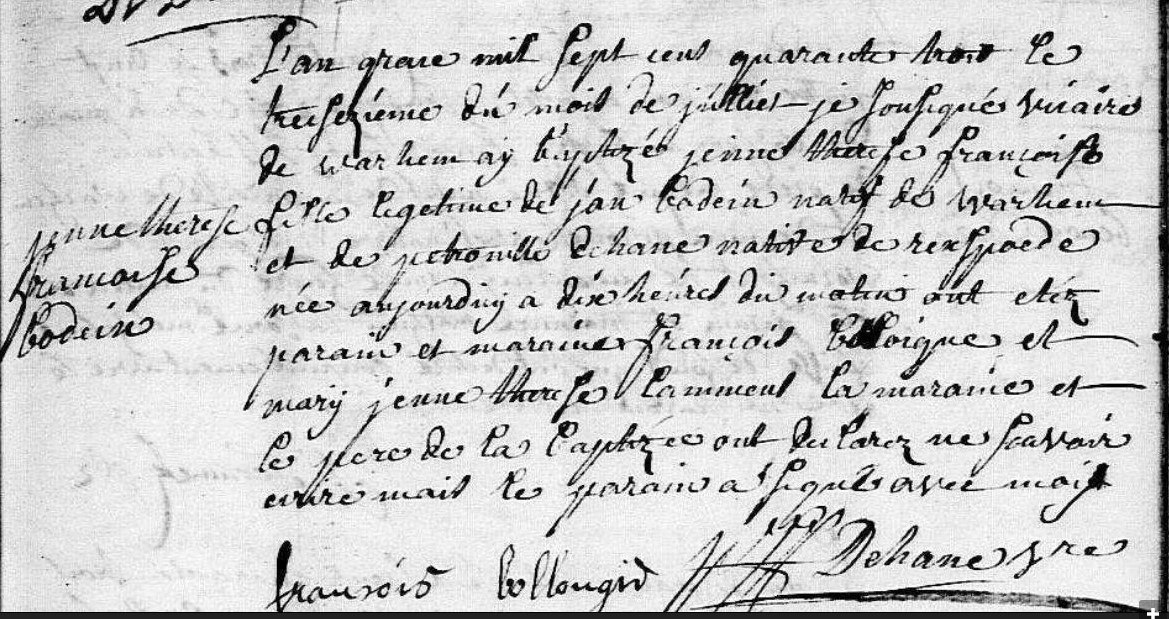 L'an grace mil sept cens quarante trois le
treisezieme du mois de julliet je sousigné vicaire
de warhem ay baptizé jenne therese françoise
fille legetime de jan bodein natif de warhem
et de petronille dehane native de rexspoede
née aujourduy a dix heures du matin ont etéz
parain et maraine françois bolloigne et
mary jenne therese lammens la maraine et
le pere de la baptizée ont declarez ne scavoir
ecrire mais le parain a signé avec moy
jenne therese
francoise
bodein
françois bollongie
Dehane vre